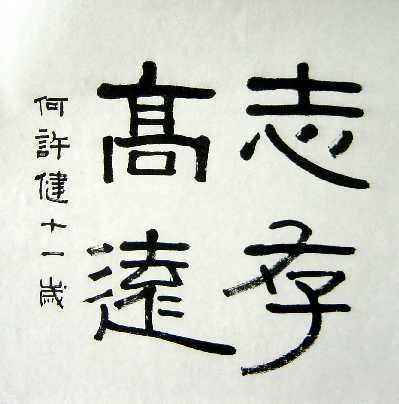 志存
高遠
何許健十一歲